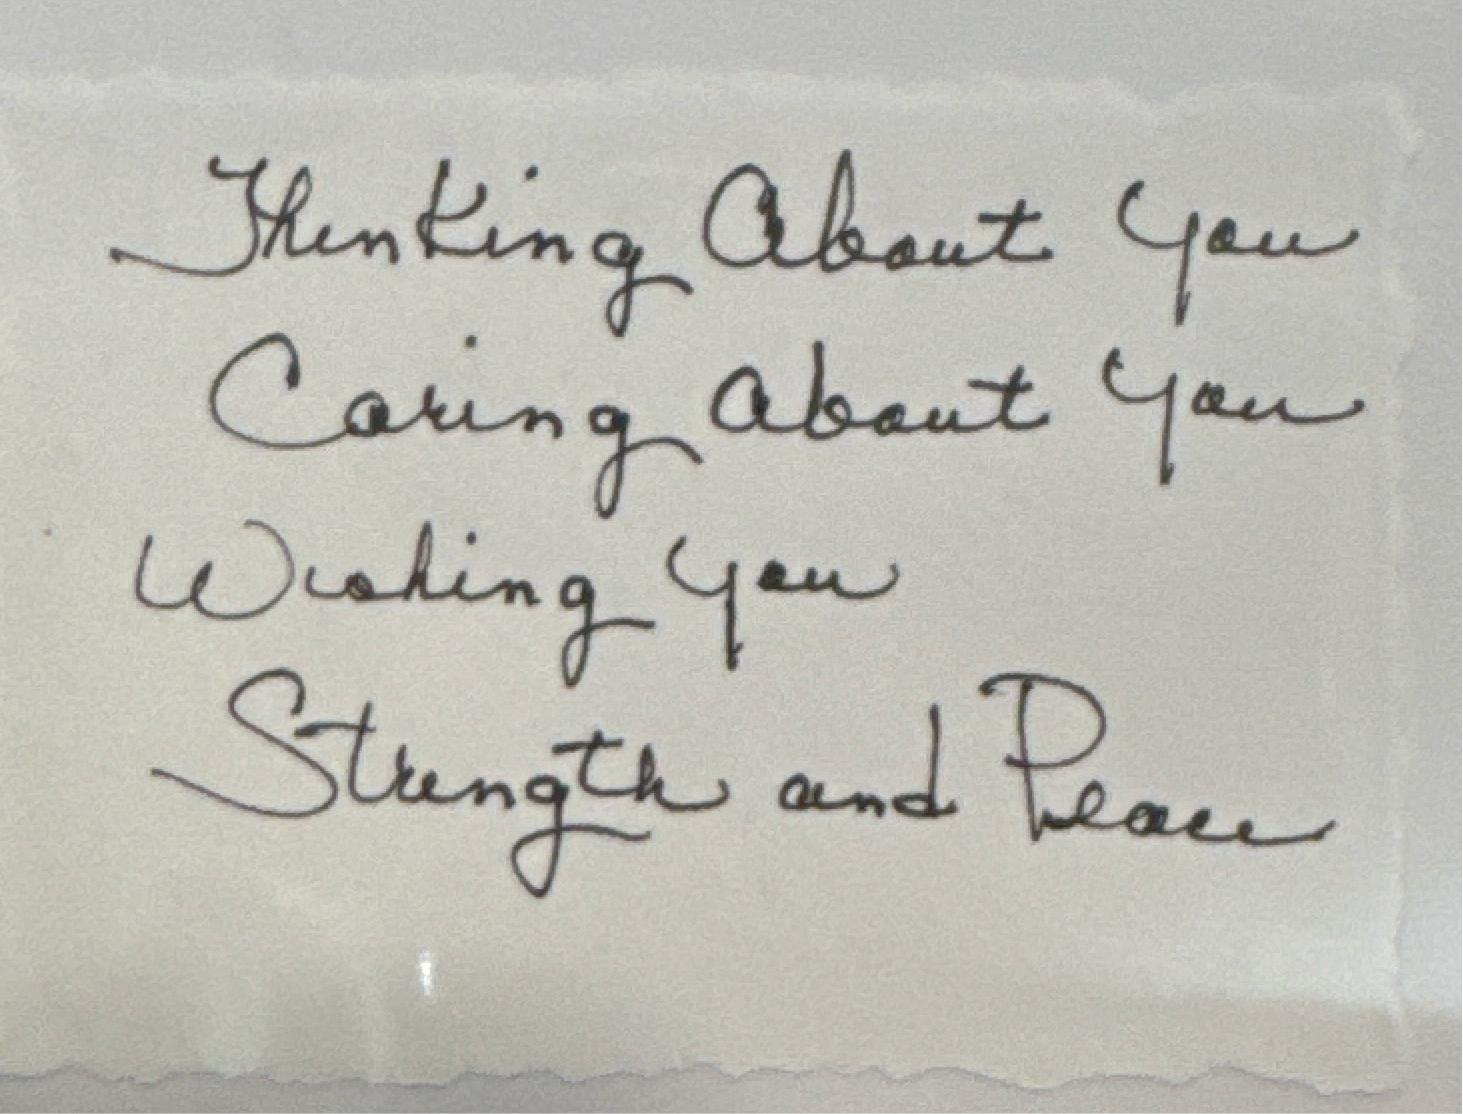 Thinking About You
Caring About You
Wishing You
Strength and Peace